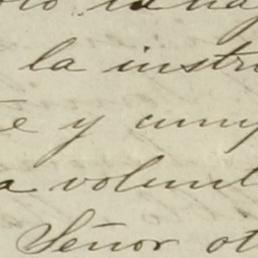 la instr
e y cump
a volunt
Señor ot